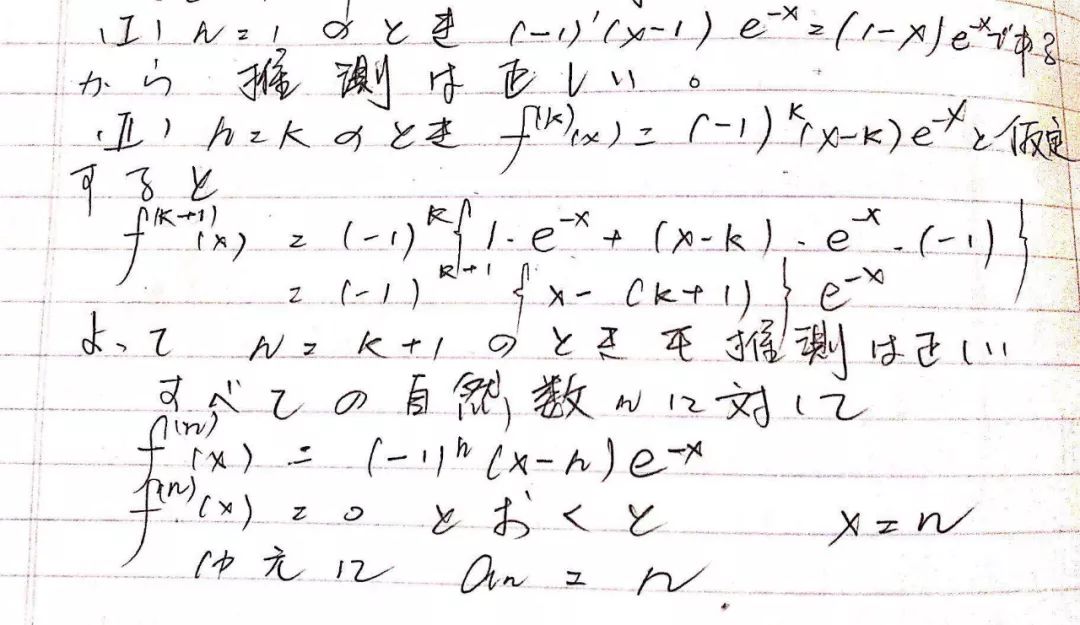 (I) n=1 のとき (-1)'(x-1) e^{-x}=(1-x)e^{-x}である
から 推測は正しい。
(II) n=k のとき f^{(k)}(x)=(-1)^k(x-k)e^{-x}と仮定
すると
f^{(k+1)}(x) = (-1)^k{1・e^{-x}+(x-k)・e^{-x}・(-1)}
= (-1)^{k+1}{x-(k+1)}e^{-x}
よって n=k+1 のときも推測は正しい
すべての自然数nに対して
f^{(n)}(x) = (-1)^n(x-n)e^{-x}
f^{(n)}(x)=0 とおくと x=n
ゆえに an=n.